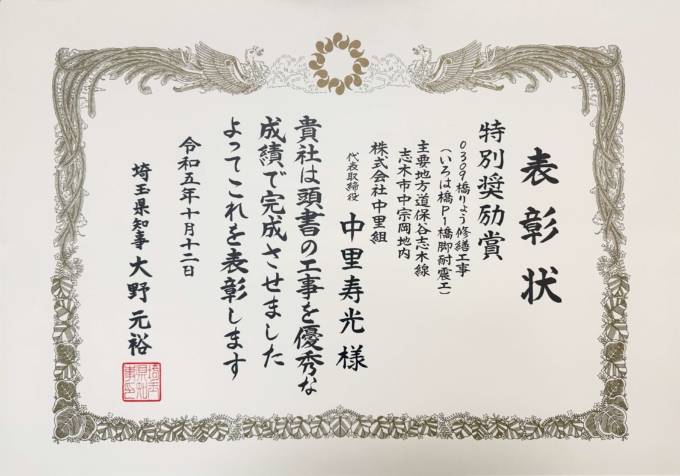 表彰状
特別奨励賞
0309橋りょう修繕工事
(いろは橋P1橋脚耐震工)
主要地方道保谷志木線
志木市中宗岡地内
株式会社中里組
代表取締役 中里寿光 様
貴社は頭書の工事を優秀な
成績で完成させました
よってこれを表彰します
令和五年十月十二日
埼玉県知事 大野元裕